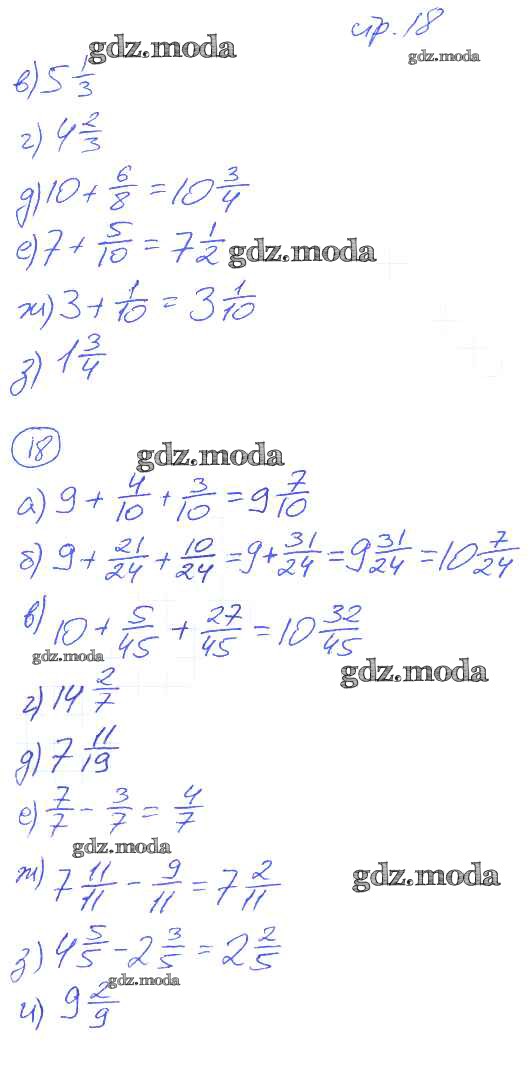 стр. 18
gdz.moda
gdz.moda
в) 5 1/3
г) 4 2/3
д) 10 + 6/8 = 10 3/4
е) 7 + 5/10 = 7 1/2
gdz.moda
ж) 3 + 1/10 = 3 1/10
з) 1 3/4
18
gdz.moda
а) 9 + 4/10 + 3/10 = 9 7/10
б) 9 + 21/24 + 10/24 = 9 + 31/24 = 9 31/24 = 10 7/24
в) 10 + 5/45 + 27/45 = 10 32/45
gdz.moda
gdz.moda
г) 14 2/7
д) 7 11/19
е) 7/7 - 3/7 = 4/7
gdz.moda
ж) 7 11/11 - 9/11 = 7 2/11
gdz.moda
з) 4 5/5 - 2 3/5 = 2 2/5
gdz.moda
и) 9 2/9